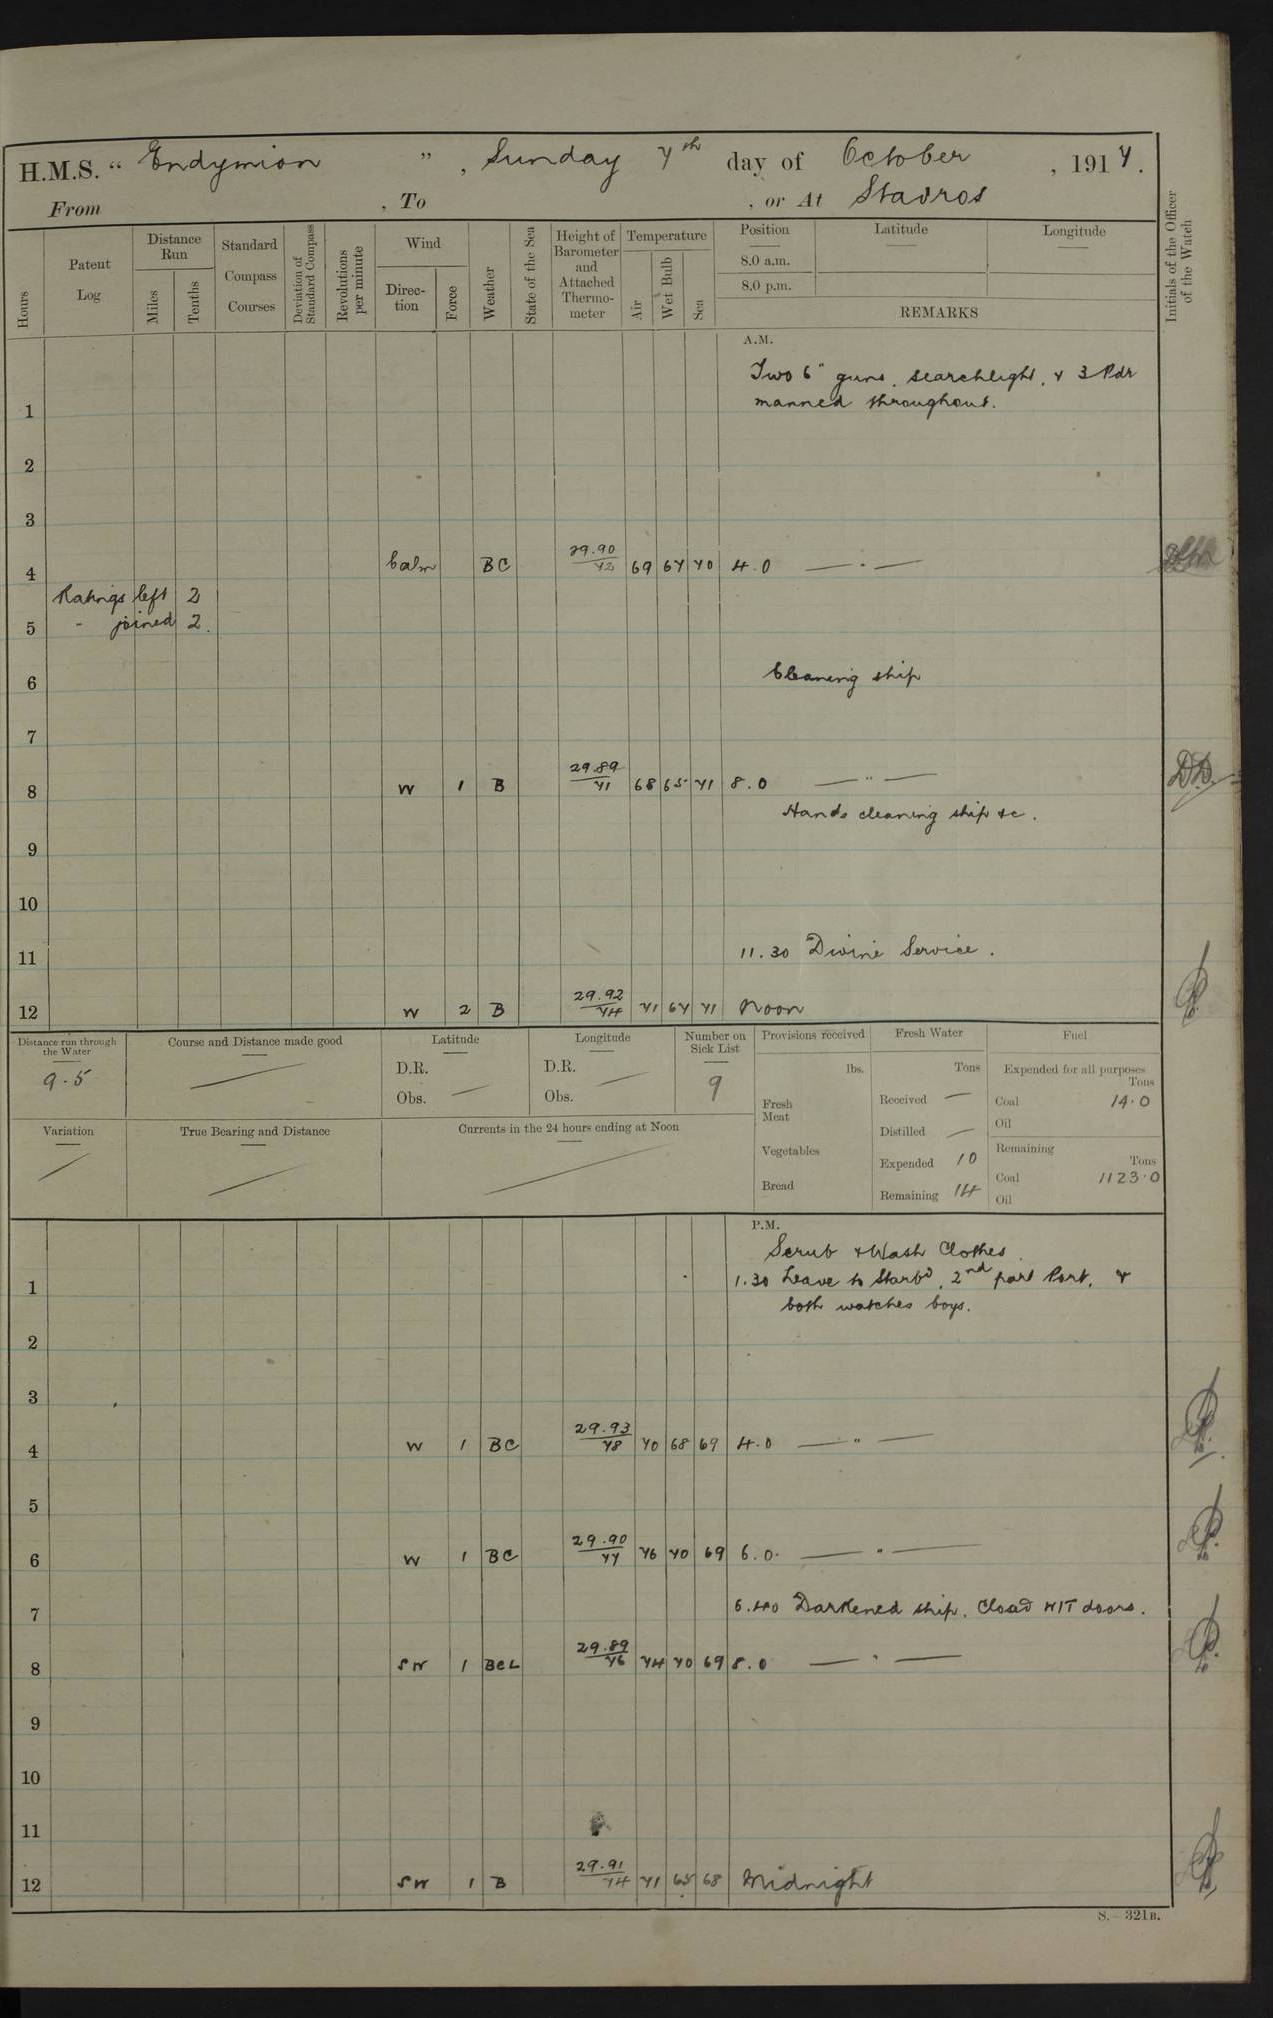 H.M.S. " Endymion ", Sunday 7th day of October, 1917.
From , To , or At Stavros
Hours
Patent Log
Distance Run
Miles
Tenths
Standard Compass Courses
Deviation of Standard Compass
Revolutions per minute
Wind
Direction
Force
Weather
State of the Sea
Height of Barometer and Attached Thermometer
Temperature
Air
Wet Bulb
Sea
Position
8.0 a.m.
8.0 p.m.
Latitude
Longitude
REMARKS
Initials of the Officer of the Watch
A.M.
Two 6" guns, searchlight, & 3 Pdr
manned throughout.
1
2
3
4 Calm BC 29.90 / 73 69 67 70 4.0 — " —
Ratings left 2
" joined 2.
5
6 Cleaning ship
7
8 W 1 B 29.89 / 71 68 65 71 8.0 — " — D.D.
Hands cleaning ship &c.
9
10
11 11.30 Divine Service.
12 W 2 B 29.92 / 74 71 67 71 Noon
Distance run through the Water
9.5
Course and Distance made good
Latitude
D.R.
Obs.
Longitude
D.R.
Obs.
Number on Sick List
9
Provisions received
lbs.
Fresh Meat
Vegetables
Bread
Fresh Water
Tons
Received —
Distilled —
Expended 10
Remaining 14
Fuel
Expended for all purposes
Tons
Coal 14.0
Oil
Remaining
Tons
Coal 1123.0
Oil
Variation
True Bearing and Distance
Currents in the 24 hours ending at Noon
P.M.
Scrub & Wash Clothes.
1.30 Leave to Starbd, 2nd part Port, &
both watches boys.
1
2
3
4 W 1 BC 29.93 / 78 70 68 69 4.0 — " —
5
6 W 1 BC 29.90 / 77 76 70 69 6.0. — " —
7 6.40 Darkened ship. Closed W/T doors.
8 SW 1 BCL 29.89 / 76 74 70 69 8.0 — " —
9
10
11
12 SW 1 B 29.91 / 74 71 65 68 Midnight
S.—321B.